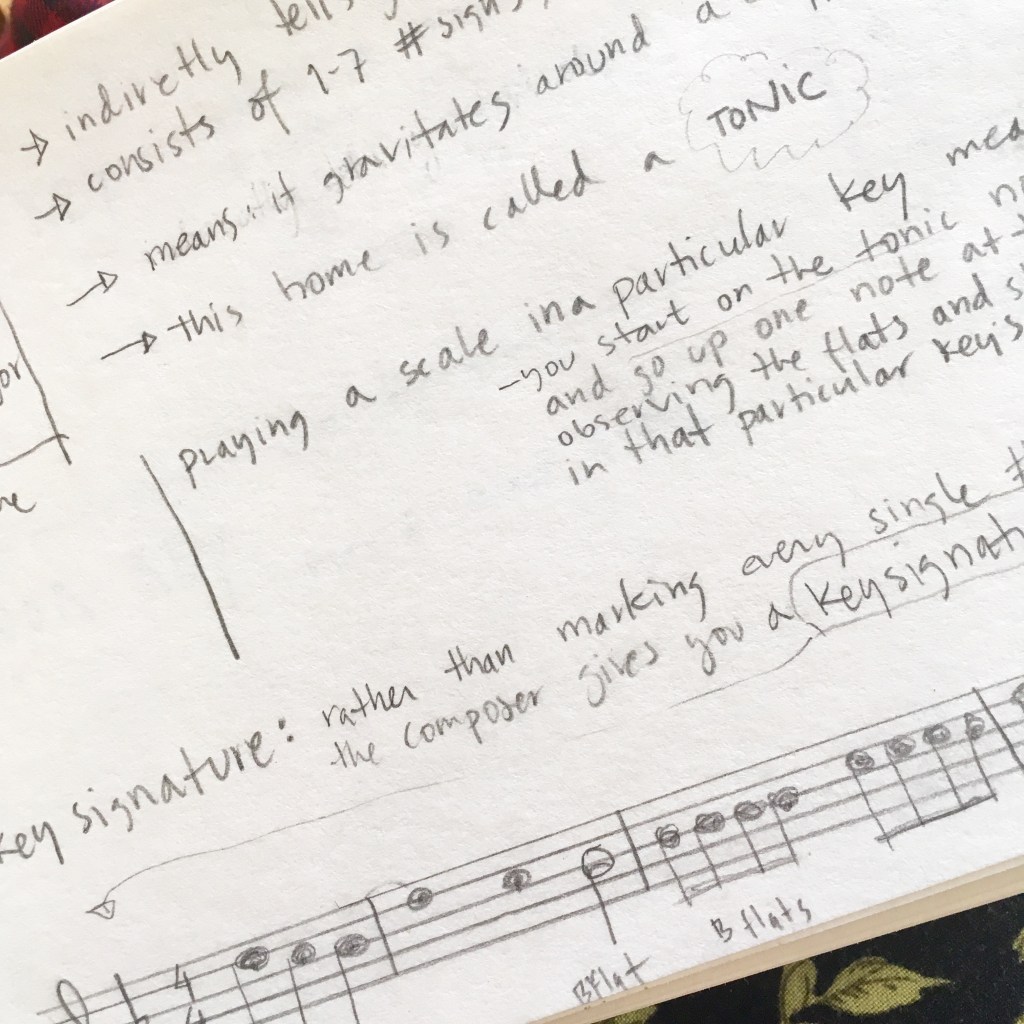 → indiretly tells
→ consists of 1-7 # signs,
→ means: it gravitates around a
→ this home is called a TONIC
playing a scale in a particular key
- you start on the tonic
and go up one note at
observing the flats and
in that particular key's
key signature: rather than marking every single #
the composer gives you a key signat
4
4
B flat
B flats